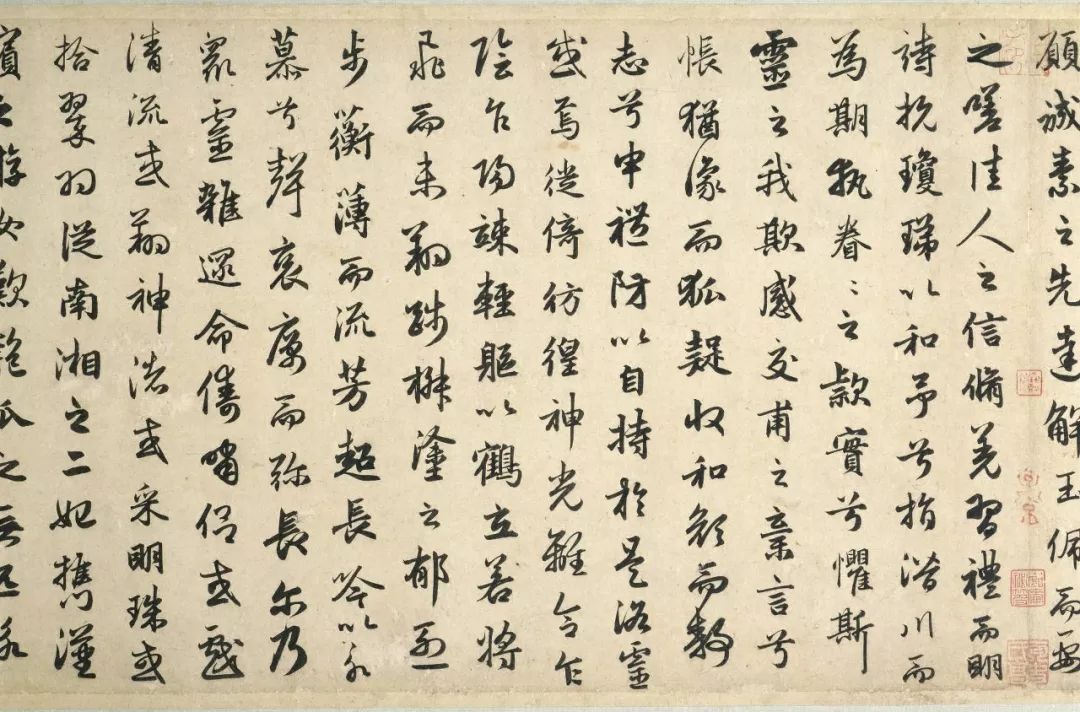 願誠素之先達解玉佩而要
之嗟佳人之信脩羌習禮而明
詩抗瓊珶以和予兮指潛川而
為期執眷〻之款實兮懼斯
靈之我欺感交甫之棄言兮
悵猶豫而狐疑收和顏而靜
志兮申禮防以自持於是洛靈
感焉徙倚彷徨神光離合乍
陰乍陽竦輕軀以鶴立若將
飛而未翔踐椒塗之郁烈
步衡薄而流芳超長吟以永
慕兮聲哀厲而弥長尓乃
眾靈雜遝命儔嘯侶或戲
清流或翔神渚或采明珠或
拾翠羽從南湘之二妃攜漢
濱之游女歎匏瓜之無匹